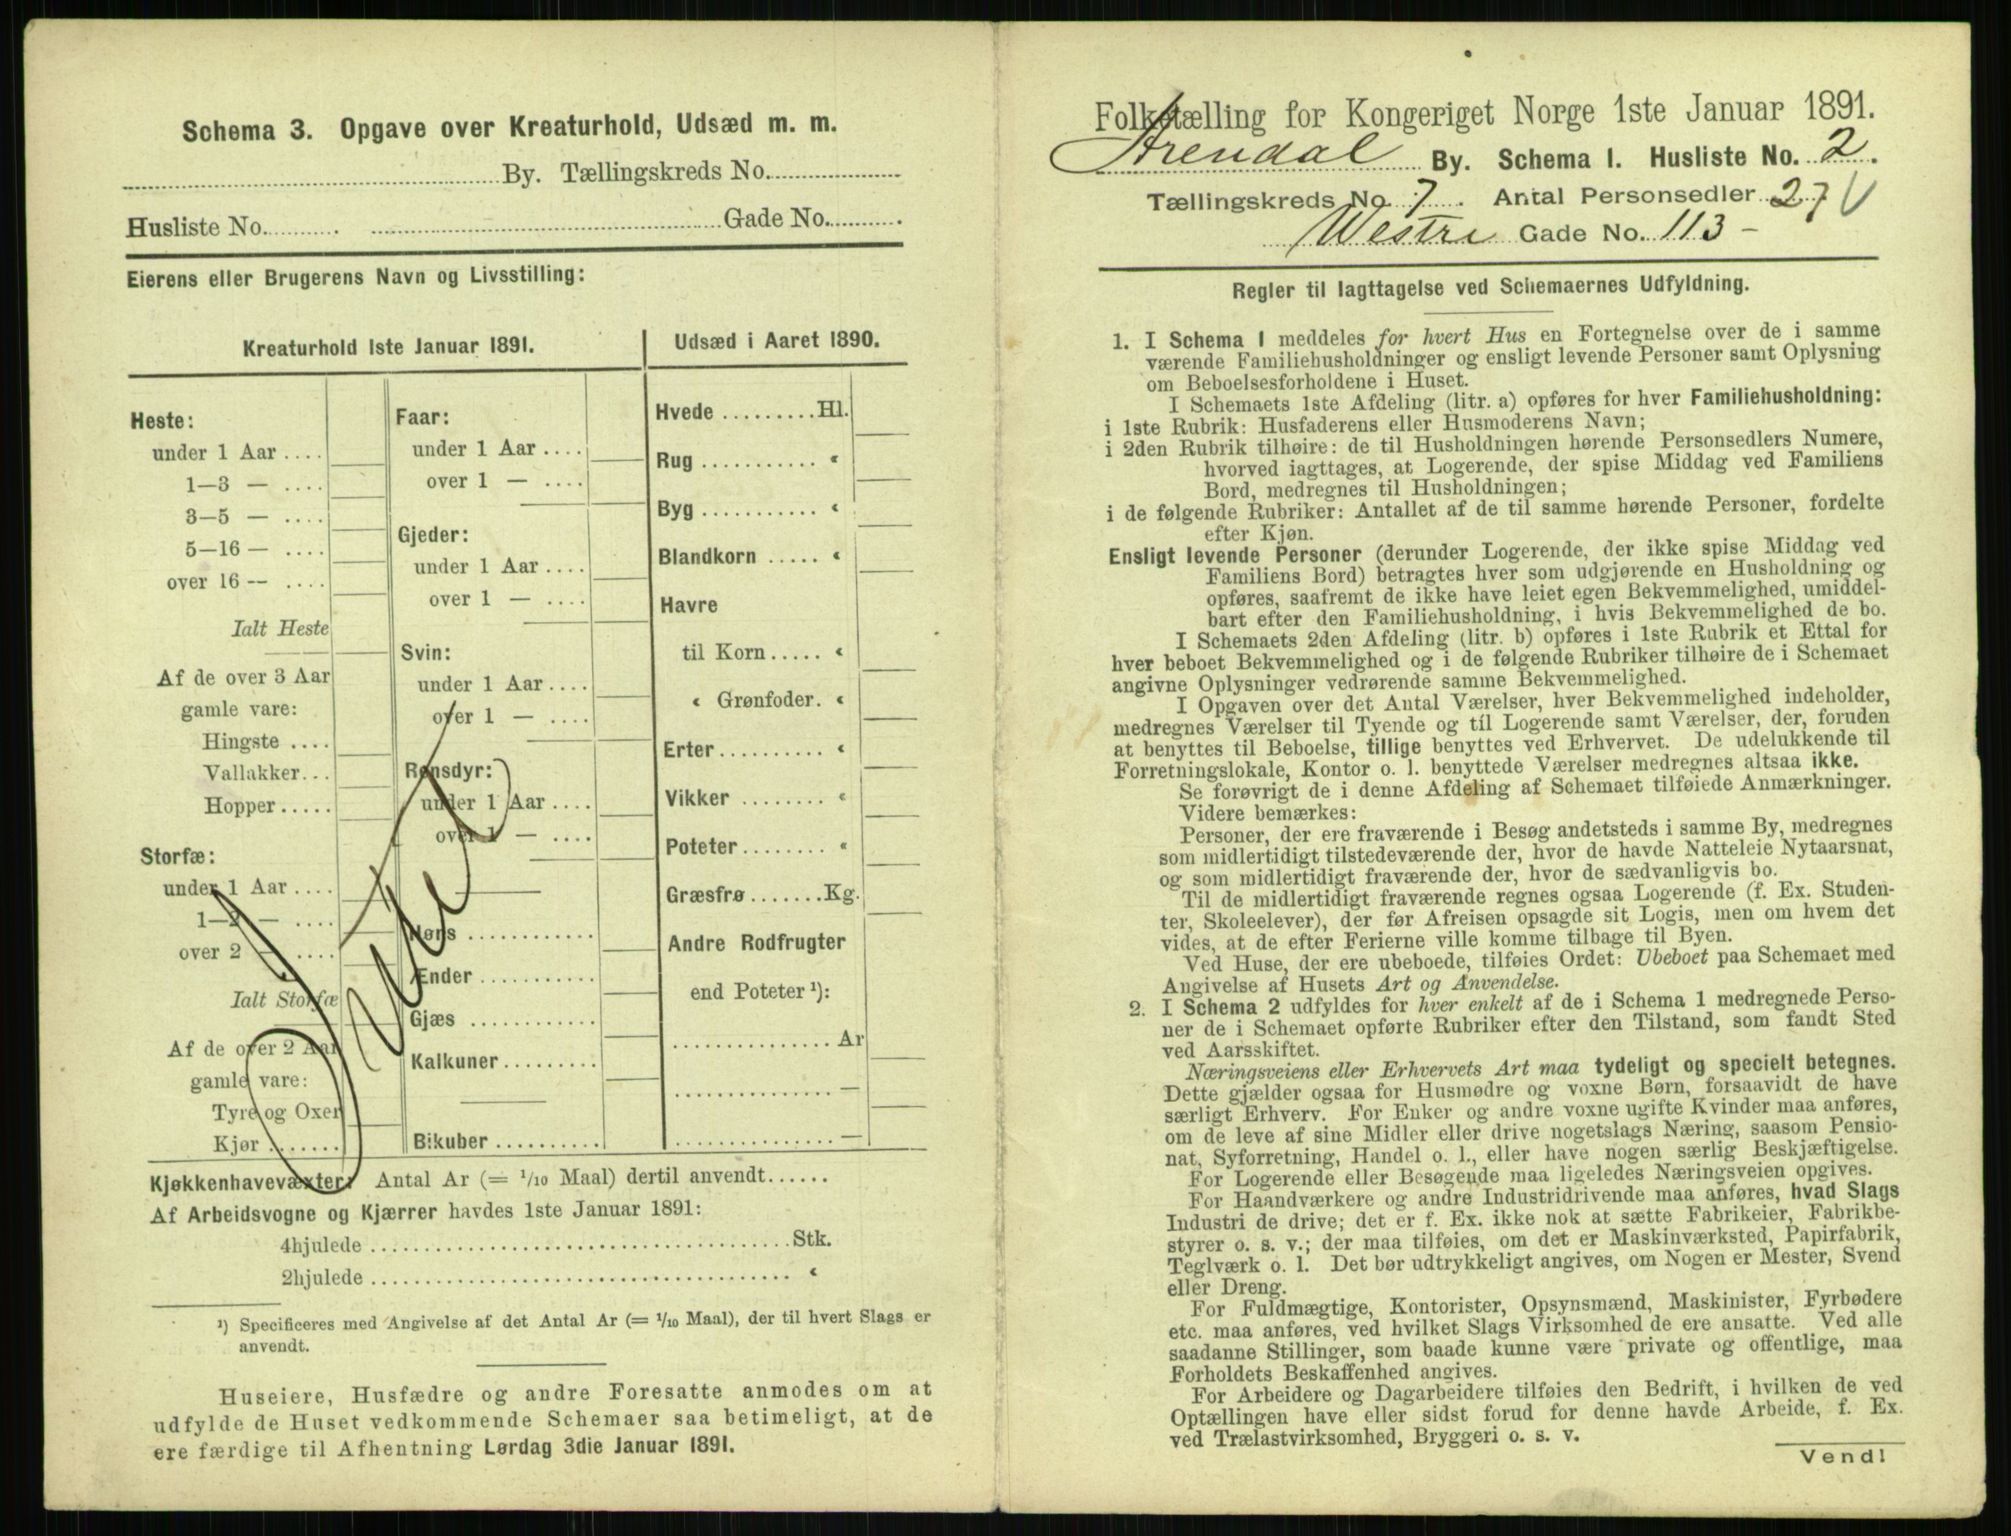 Schema 3. Opgave over Kreaturhold, Udsæd m. m.
By. Tællingskreds No.
Husliste No. Gade No.
Eierens eller Brugerens Navn og Livsstilling:
Kreaturhold 1ste Januar 1891.
Heste:
under 1 Aar ....
1—3 — ....
3—5 — ....
5—16 — ....
over 16 — ....
Ialt Heste
Af de over 3 Aar
gamle vare:
Hingste ....
Vallakker...
Hopper .....
Storfæ:
under 1 Aar ....
1—2 — ....
over 2 — ....
Ialt Storfæ
Af de over 2 Aar
gamle vare:
Tyre og Oxer
Kjør .......
Faar:
under 1 Aar ....
over 1 — ....
Gjeder:
under 1 Aar ....
over 1 — ....
Svin:
under 1 Aar ....
over 1 — ....
Rensdyr:
under 1 Aar ....
over 1 — ....
Høns ............
Ænder ...........
Gjæs ............
Kalkuner.........
Bikuber ..........
Udsæd i Aaret 1890.
Hvede .........Hl.
Rug ........... «
Byg ........... «
Blandkorn ..... «
Havre
til Korn..... «
« Grønfoder. «
Erter.......... «
Vikker ........ «
Poteter........ «
Græsfrø .......Kg.
Andre Rodfrugter
end Poteter ¹):
............... Ar
............... —
............... —
Kjøkkenhavevæxter: Antal Ar (= 1/10 Maal) dertil anvendt......
Af Arbeidsvogne og Kjærrer havdes 1ste Januar 1891:
4hjulede ........................................Stk.
2hjulede ........................................ «
¹) Specificeres med Angivelse af det Antal Ar (= 1/10 Maal), der til hvert Slags er
anvendt.
Huseiere, Husfædre og andre Foresatte anmodes om at
udfylde de Huset vedkommende Schemaer saa betimeligt, at de
ere færdige til Afhentning Lørdag 3die Januar 1891.
Folketælling for Kongeriget Norge 1ste Januar 1891.
Arendal By. Schema I. Husliste No. 2.
Tællingskreds No. 7. Antal Personsedler 27 V
Westre Gade No. 113 -
Regler til Iagttagelse ved Schemaernes Udfyldning.
1. I Schema I meddeles for hvert Hus en Fortegnelse over de i samme
værende Familiehusholdninger og ensligt levende Personer samt Oplysning
om Beboelsesforholdene i Huset.
I Schemaets 1ste Afdeling (litr. a) opføres for hver Familiehusholdning:
i 1ste Rubrik: Husfaderens eller Husmoderens Navn;
i 2den Rubrik tilhøire: de til Husholdningen hørende Personsedlers Numere,
hvorved iagttages, at Logerende, der spise Middag ved Familiens
Bord, medregnes til Husholdningen;
i de følgende Rubriker: Antallet af de til samme hørende Personer, fordelte
efter Kjøn.
Ensligt levende Personer (derunder Logerende, der ikke spise Middag ved
Familiens Bord) betragtes hver som udgjørende en Husholdning og
opføres, saafremt de ikke have leiet egen Bekvemmelighed, umiddel-
bart efter den Familiehusholdning, i hvis Bekvemmelighed de bo.
I Schemaets 2den Afdeling (litr. b) opføres i 1ste Rubrik et Ettal for
hver beboet Bekvemmelighed og i de følgende Rubriker tilhøire de i Schemaet
angivne Oplysninger vedrørende samme Bekvemmelighed.
I Opgaven over det Antal Værelser, hver Bekvemmelighed indeholder,
medregnes Værelser til Tyende og til Logerende samt Værelser, der, foruden
at benyttes til Beboelse, tillige benyttes ved Erhvervet. De udelukkende til
Forretningslokale, Kontor o. l. benyttede Værelser medregnes altsaa ikke.
Se forøvrigt de i denne Afdeling af Schemaet tilføiede Anmærkninger.
Videre bemærkes:
Personer, der ere fraværende i Besøg andetsteds i samme By, medregnes
som midlertidigt tilstedeværende der, hvor de havde Natteleie Nytaarsnat,
og som midlertidigt fraværende der, hvor de sædvanligvis bo.
Til de midlertidigt fraværende regnes ogsaa Logerende (f. Ex. Studen-
ter, Skoleelever), der før Afreisen opsagde sit Logis, men om hvem det
vides, at de efter Ferierne ville komme tilbage til Byen.
Ved Huse, der ere ubeboede, tilføies Ordet: Ubeboet paa Schemaet med
Angivelse af Husets Art og Anvendelse.
2. I Schema 2 udfyldes for hver enkelt af de i Schema 1 medregnede Perso-
ner de i Schemaet opførte Rubriker efter den Tilstand, som fandt Sted
ved Aarsskiftet.
Næringsveiens eller Erhvervets Art maa tydeligt og specielt betegnes.
Dette gjælder ogsaa for Husmødre og voxne Børn, forsaavidt de have
særligt Erhverv. For Enker og andre voxne ugifte Kvinder maa anføres,
om de leve af sine Midler eller drive nogetslags Næring, saasom Pensio-
nat, Syforretning, Handel o. l., eller have nogen særlig Beskjæftigelse.
For Logerende eller Besøgende maa ligeledes Næringsveien opgives.
For Haandværkere og andre Industridrivende maa anføres, hvad Slags
Industri de drive; det er f. Ex. ikke nok at sætte Fabrikeier, Fabrikbe-
styrer o. s. v.; der maa tilføies, om det er Maskinværksted, Papirfabrik,
Teglværk o. l. Det bør udtrykkeligt angives, om Nogen er Mester, Svend
eller Dreng.
For Fuldmægtige, Kontorister, Opsynsmænd, Maskinister, Fyrbødere
etc. maa anføres, ved hvilket Slags Virksomhed de ere ansatte. Ved alle
saadanne Stillinger, som baade kunne være private og offentlige, maa
Forholdets Beskaffenhed angives.
For Arbeidere og Dagarbeidere tilføies den Bedrift, i hvilken de ved
Optællingen have eller sidst forud for denne havde Arbeide, f. Ex.
ved Trælastvirksomhed, Bryggeri o. s. v.
Vend!